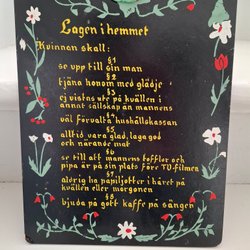 Lagen i hemmet
Kvinnan skall:
§1
se upp till sin man
§2
tjäna honom med glädje
§3
ej vistas ute på kvällen i
annat sällskap än mannens
§4
väl förvalta hushållskassan
§5
alltid vara glad, laga god
och närande mat
§6
se till att mannens tofflor och
pipa är på sin plats före TV-filmen
§7
aldrig ha papiljotter i håret på
kvällen eller morgonen
§8
bjuda på gott kaffe på sängen